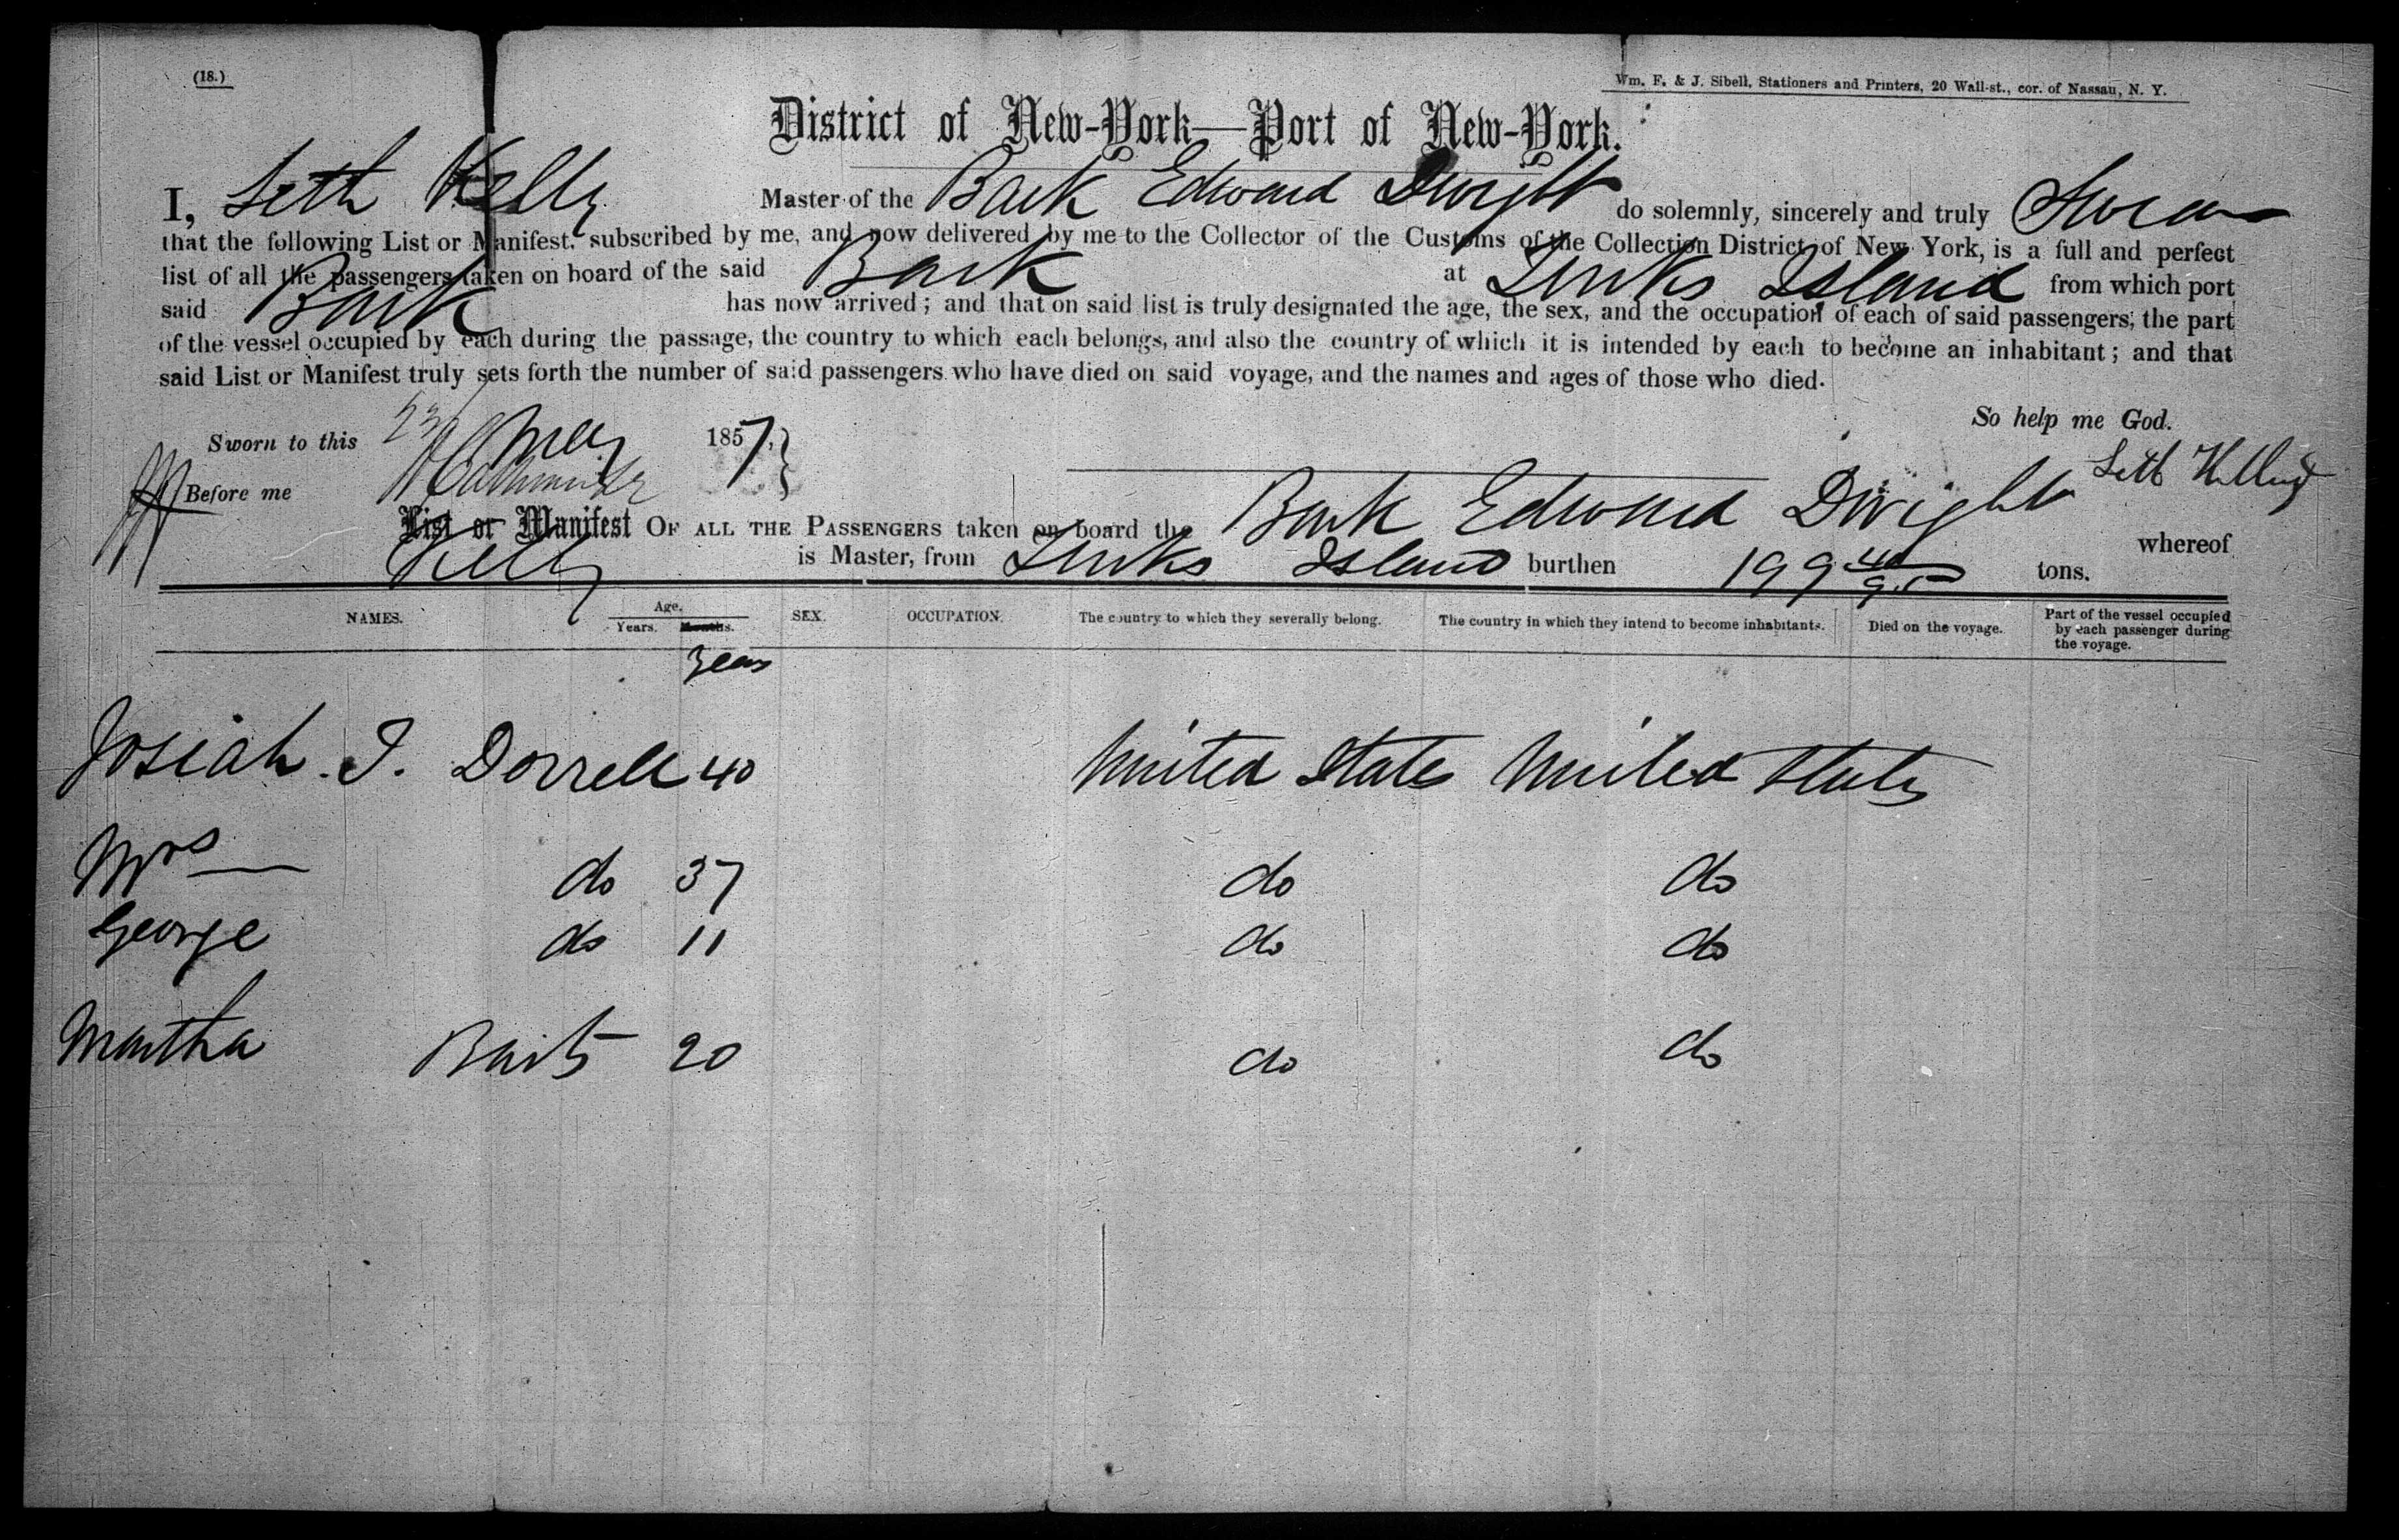 (18.)
Wm. F. & J. Sibell, Stationers and Printers, 20 Wall-st., cor. of Nassau, N. Y.
District of New-York—Port of New-York.
I, Seth Kelly Master of the Bark Edward Dwight do solemnly, sincerely and truly Swear
that the following List or Manifest, subscribed by me, and now delivered by me to the Collector of the Customs of the Collection District of New York, is a full and perfect
list of all the passengers taken on board of the said Bark at Turks Island from which port
said Bark has now arrived; and that on said list is truly designated the age, the sex, and the occupation of each of said passengers, the part
of the vessel occupied by each during the passage, the country to which each belongs, and also the country of which it is intended by each to become an inhabitant; and that
said List or Manifest truly sets forth the number of said passengers who have died on said voyage, and the names and ages of those who died.
So help me God.
Sworn to this 23 May 1857,
Seth Kelley
Before me
List or Manifest OF ALL THE PASSENGERS taken on board the Bark Edward Dwight whereof
Kelly is Master, from Turks Island burthen 199 40/95 tons.
NAMES. Age. Years. Months. SEX. OCCUPATION. The country to which they severally belong. The country in which they intend to become inhabitants. Died on the voyage. Part of the vessel occupied by each passenger during the voyage.
years
Josiah. I. Dorrell 40 United States United States
Mrs do 37 do do
George do 11 do do
Martha 20 do do